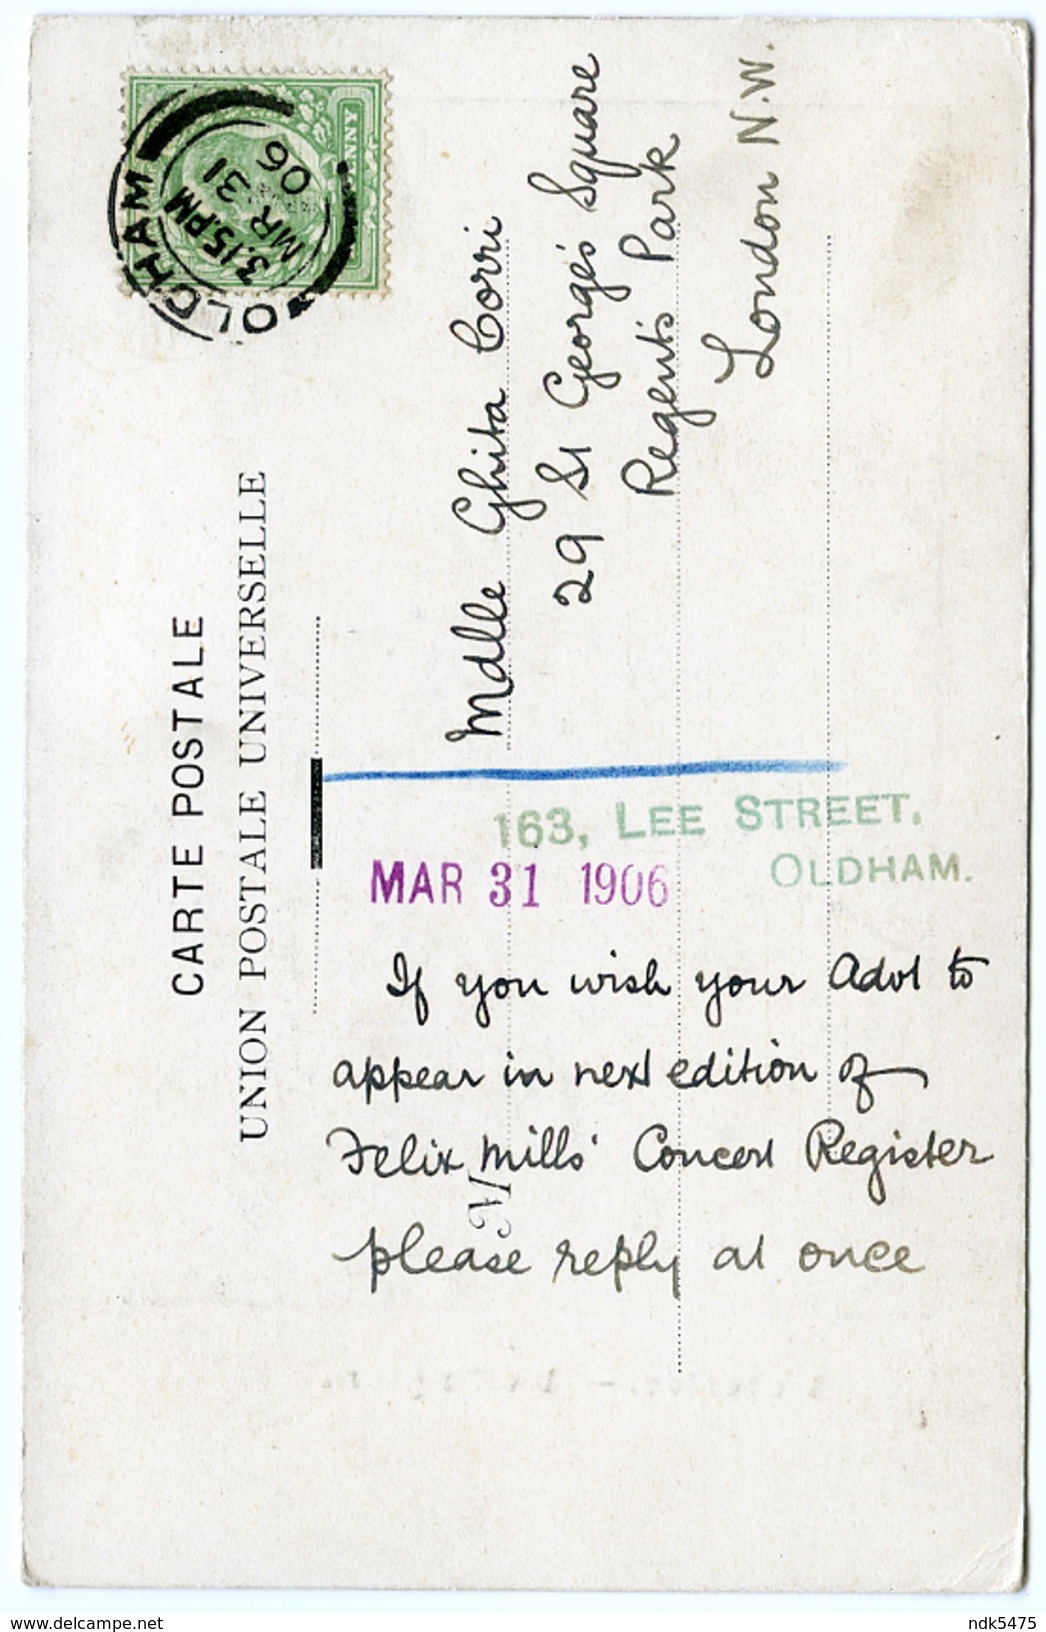 CARTE POSTALE
UNION POSTALE UNIVERSELLE
OLDHAM
3.15.PM
MR 31
06
Mdlle Ghita Corri
29 St George's Square
Regent's Park
London N.W.
163, LEE STREET,
OLDHAM.
MAR 31 1906
If you wish your Advt to
appear in next edition of
Felix Mills' Concert Register
please reply at once
M
www.delcampe.net
ndk5475